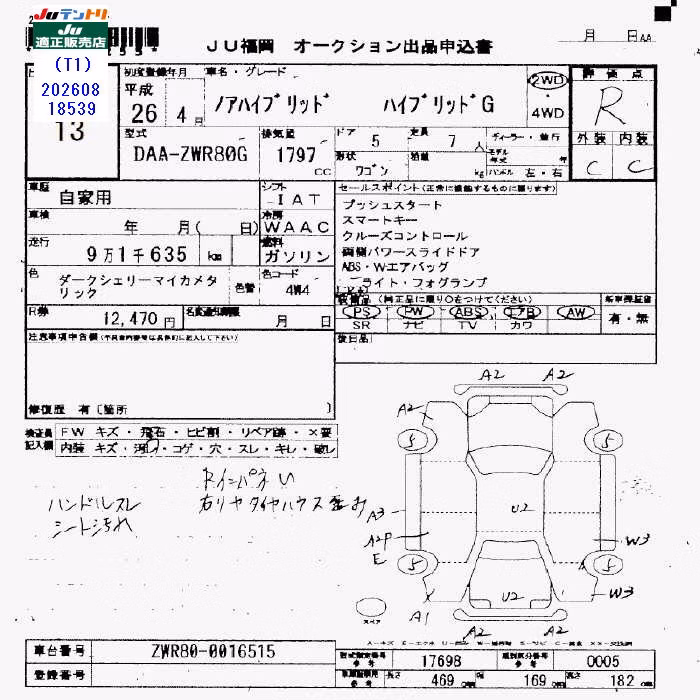 Juテントリ
Ju
適正販売店
(T1)
202608
18539
13
JU福岡 オークション出品申込書
月 日 AA
初度登録年月
車名・グレード
2WD
4WD
評価点
平成
26 4月
ノアハイブリッド ハイブリッドG
R
型式
排気量
ドア
定員
外装 内装
DAA-ZWR80G
1797 cc
5
7人
C C
形状
ワゴン
kg
ハンドル 左・右
車歴
自家用
シフト
IAT
セールスポイント(正常に機能するものに限ります)
車検
年 月( 日)
冷房
WAAC
プッシュスタート
スマートキー
クルーズコントロール
走行
9万1千635 km
燃料
ガソリン
両側パワースライドドア
ABS・Wエアバッグ
ライト・フォグランプ
色
ダークシェリーマイカメタリック
色替
色コード
4W4
装備品(純正品に限り○をつけてください)
新車保証書
R券
12,470円
名変通知期限
月 日
PS PW ABS エアB AW
SR ナビ TV カワ
有・無
後日品
修復歴 有 [箇所 ]
検査員
記入欄
FW キズ・飛石・ヒビ割・リペア跡・×要
内装 キズ・汚れ・コゲ・穴・スレ・キレ・破レ
ハンドルスレ
シート汚れ
右リヤタイヤハウス歪み
A2 A2
A2
5 5
U2
A3
A2P
E
W3
5 5
U2
W3
スペア
A1
A2 A2
車台番号
ZWR80-0016515
登録番号
型式指定番号
参考
17698
類別区分番号
参考
0005
長さ 469
幅 169
高さ 182
cm